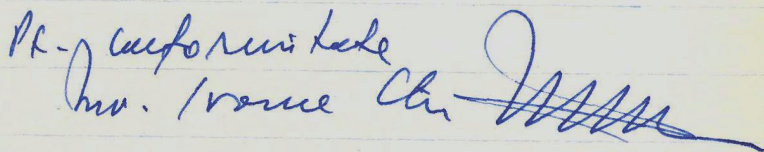 Pt. conformitate
Inv. Ivonne